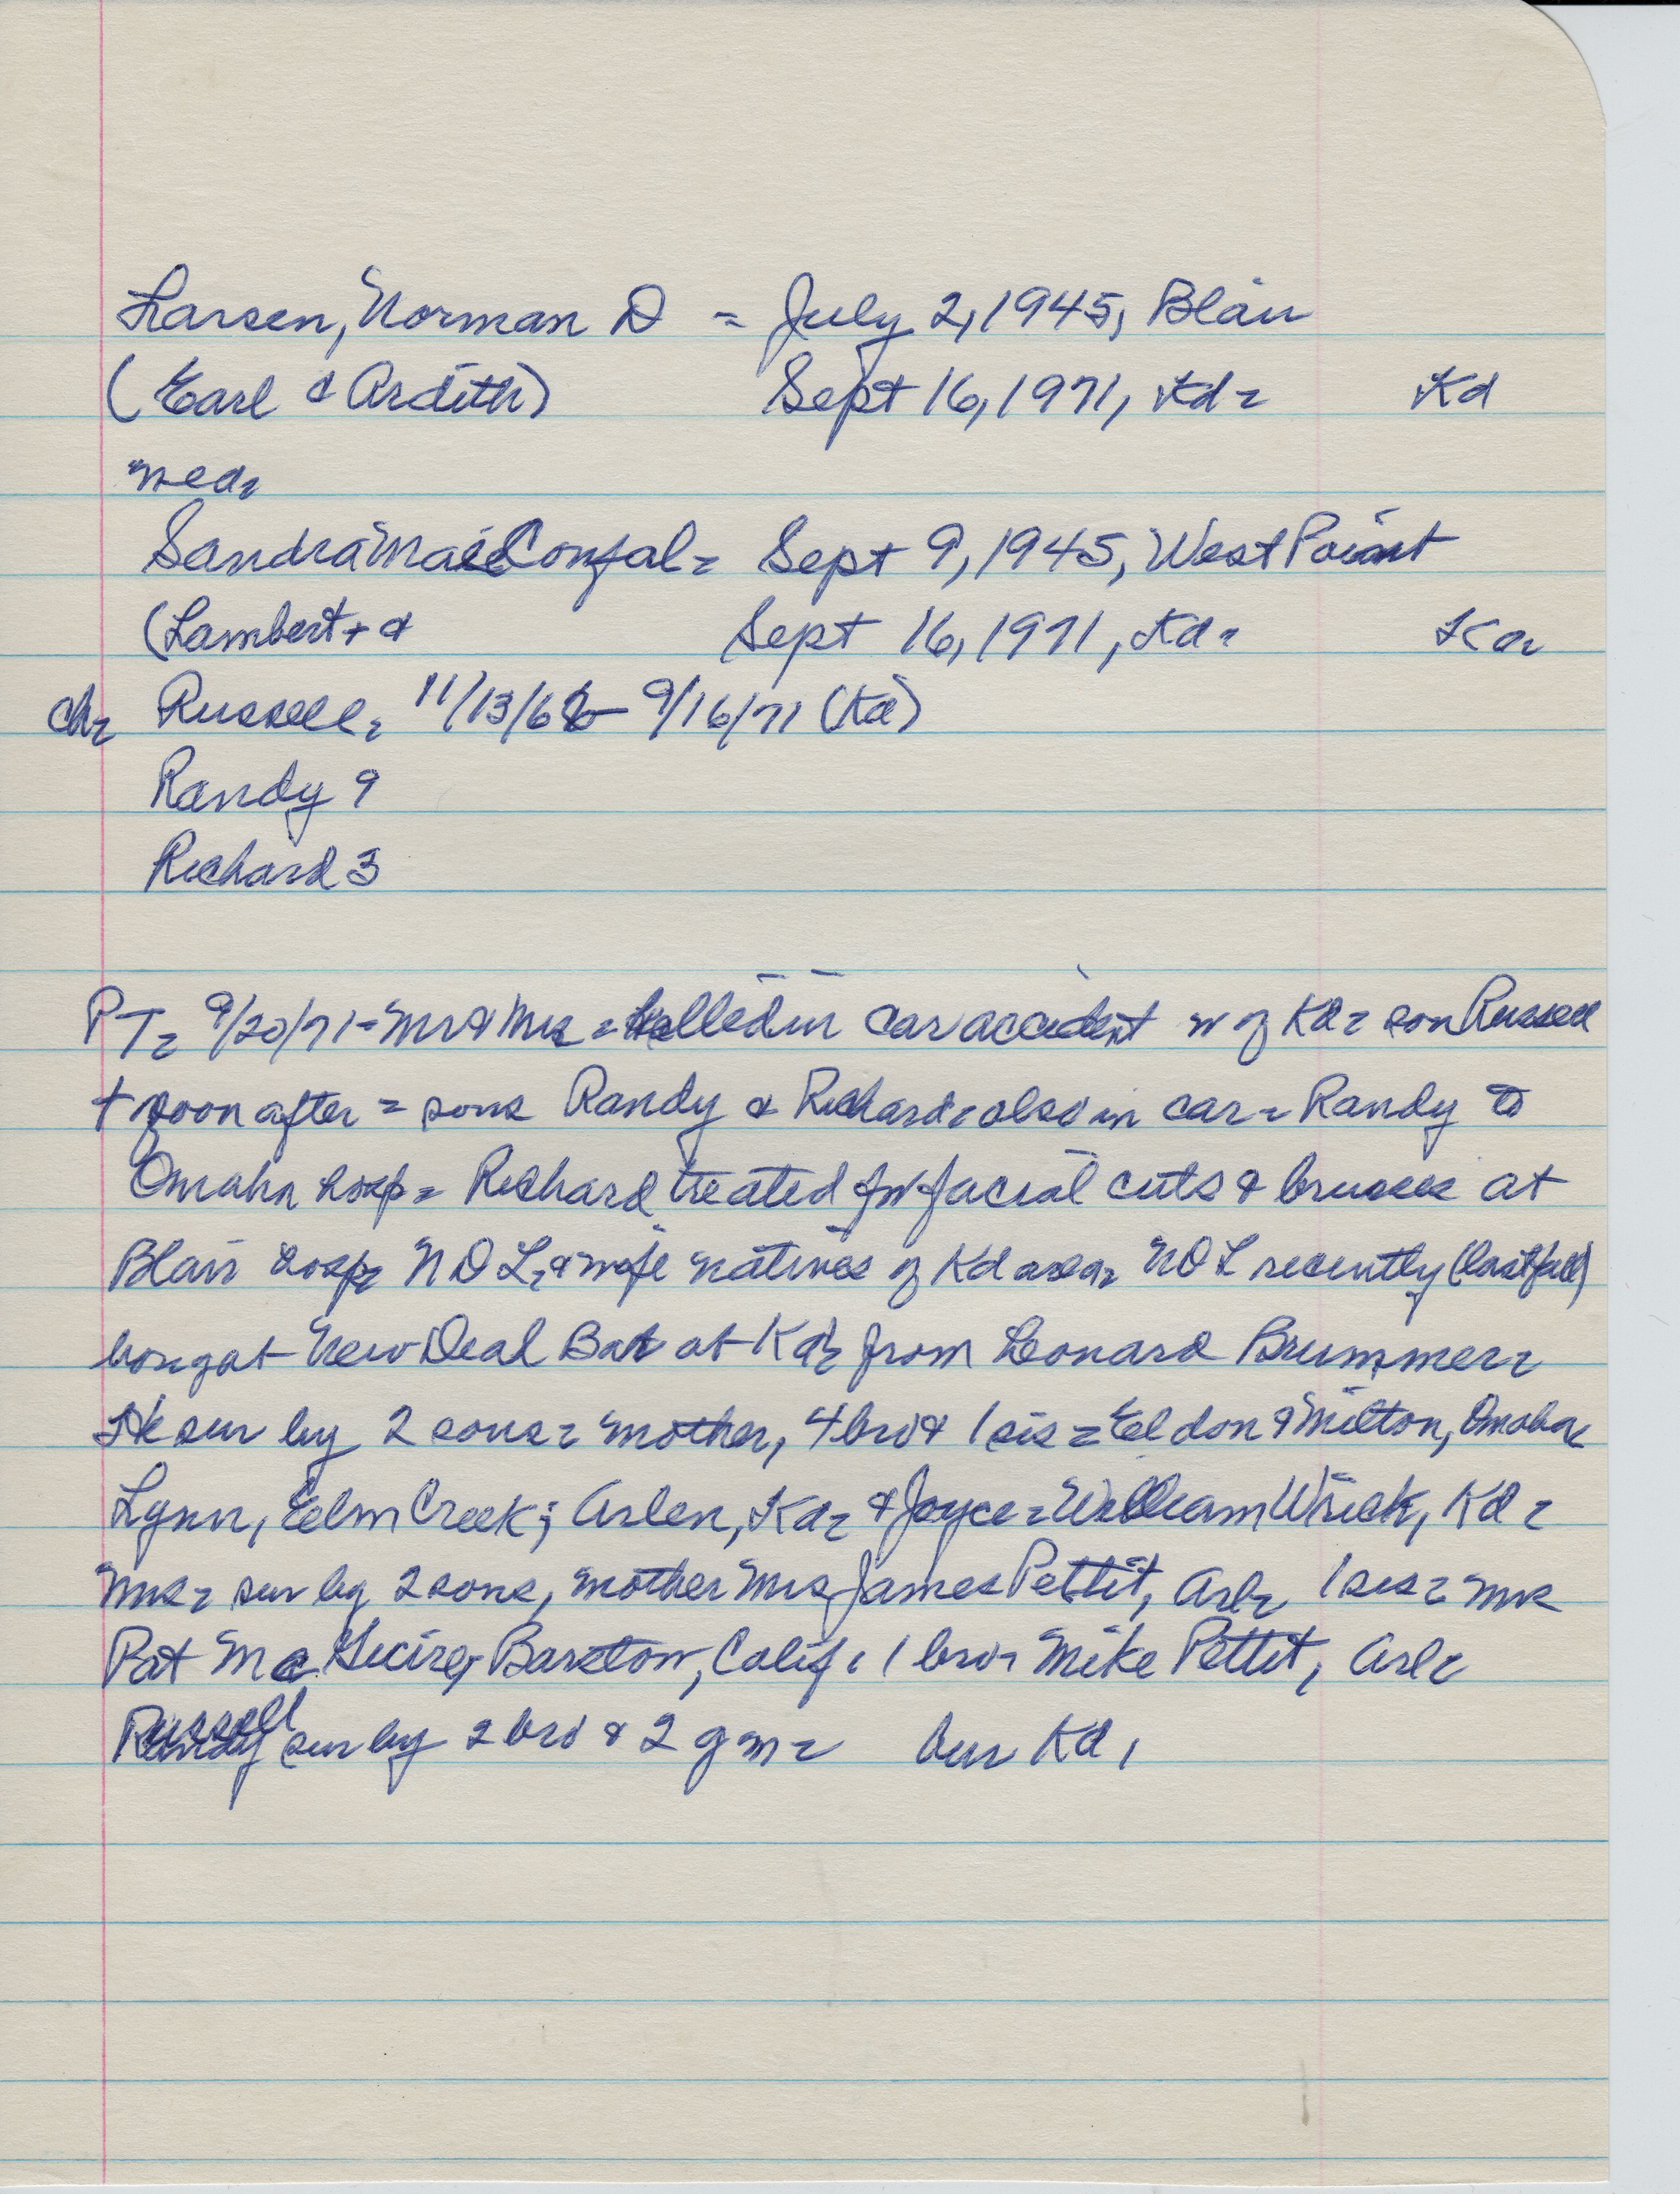 Larsen, Norman D = July 2, 1945, Blair
(Earl & Ardith) Sept 16, 1971, Kd= Kd
med=
Sandra Mae Conzal= Sept 9, 1945, West Point
(Lambert + & Sept 16, 1971, Kd= Kd=
ch= Russell= 11/13/66- 9/16/71 (Kd)
Randy 9
Richard 3
PT= 9/20/71= Mr & Mrs = killed in car accident w of Kd= son Russell
+ soon after = sons Randy & Richard= also in car= Randy to
Omaha hosp= Richard treated for facial cuts & bruises at
Blair hosp= N D L, & wife natives of Kd area= N D L recently (last fall)
bougat New Deal Bar at Kd= from Leonard Brummer=
sur by 2 sons= mother, 4 bro & 1 sis = Eldon & Milton, Omaha=
Lynn, Elm Creek; Arlen, Kd= & Joyce= William Wrich, Kd=
Mrs= sur by 2 sons, mother Mrs James Pettit, Arl= 1 sis= Mrs
Pat McGuire, Barstow, Calif, 1 bro= Mike Pettit, Arl=
Russell sur by 2 bro & 2 gm= bur Kd,